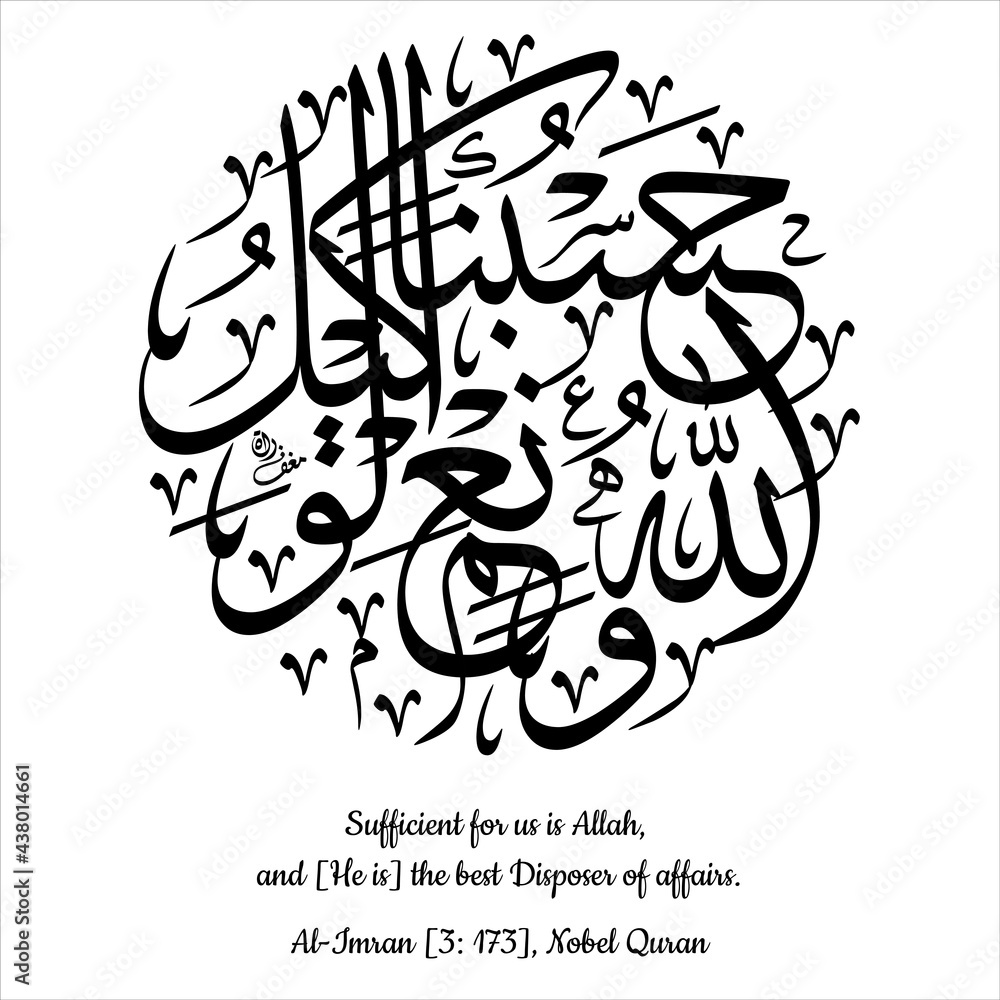 حسبنا الله ونعم الوكيل
Sufficient for us is Allah,
and [He is] the best Disposer of affairs.
Al-Imran [3: 173], Nobel Quran
Adobe Stock | #438014661
Adobe Stock